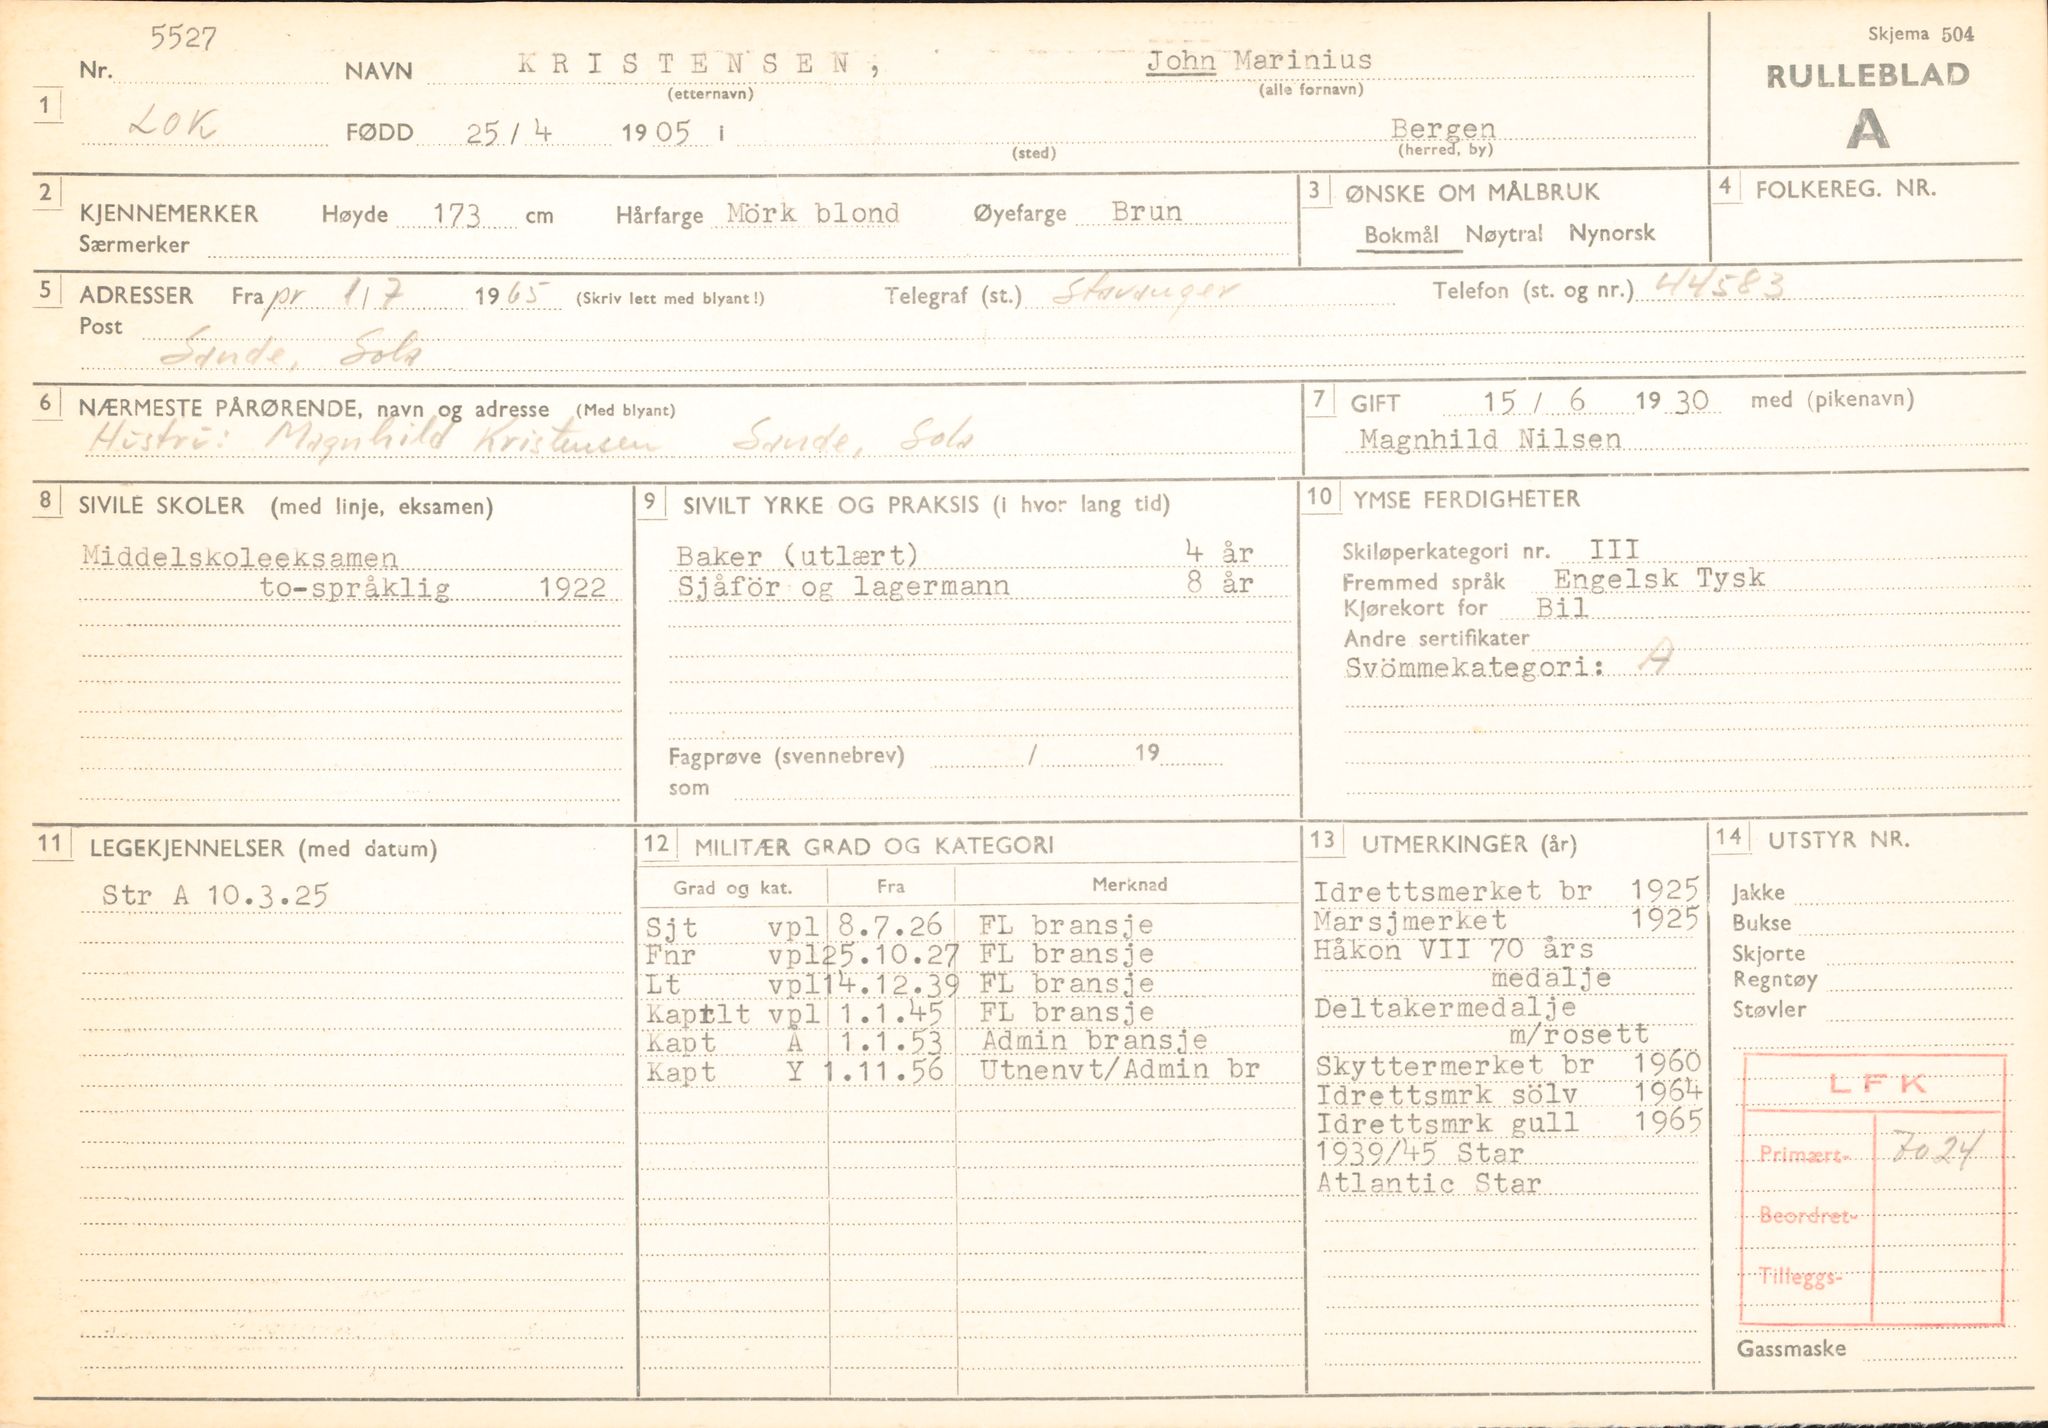 5527
Skjema 504
Nr. NAVN KRISTENSEN, John Marinius
(etternavn) (alle fornavn)
RULLEBLAD
A
1 LOK FØDD 25/4 1905 i Bergen
(sted) (herred, by)
2 KJENNEMERKER Høyde 173 cm Hårfarge Mörk blond Øyefarge Brun
Særmerker
3 ØNSKE OM MÅLBRUK
Bokmål Nøytral Nynorsk
4 FOLKEREG. NR.
5 ADRESSER Fra pr 1/7 1965 (Skriv lett med blyant!) Telegraf (st.) Stavanger Telefon (st. og nr.) 44583
Post
Sande, Sola
6 NÆRMESTE PÅRØRENDE, navn og adresse (Med blyant)
Hustru: Magnhild Kristensen Sande, Sola
7 GIFT 15/6 1930 med (pikenavn)
Magnhild Nilsen
8 SIVILE SKOLER (med linje, eksamen)
Middelskoleeksamen
to-språklig 1922
9 SIVILT YRKE OG PRAKSIS (i hvor lang tid)
Baker (utlært) 4 år
Sjåför og lagermann 8 år
Fagprøve (svennebrev) / 19
som
10 YMSE FERDIGHETER
Skiløperkategori nr. III
Fremmed språk Engelsk Tysk
Kjørekort for Bil
Andre sertifikater
Svömmekategori: A
11 LEGEKJENNELSER (med datum)
Str A 10.3.25
12 MILITÆR GRAD OG KATEGORI
Grad og kat. Fra Merknad
Sjt vpl 8.7.26 FL bransje
Fnr vpl 25.10.27 FL bransje
Lt vpl 14.12.39 FL bransje
Kaptlt vpl 1.1.45 FL bransje
Kapt A 1.1.53 Admin bransje
Kapt Y 1.11.56 Utnenvt/Admin br
13 UTMERKINGER (år)
Idrettsmerket br 1925
Marsjmerket 1925
Håkon VII 70 års
medalje
Deltakermedalje
m/rosett
Skyttermerket br 1960
Idrettsmrk sölv 1964
Idrettsmrk gull 1965
1939/45 Star
Atlantic Star
14 UTSTYR NR.
Jakke
Bukse
Skjorte
Regntøy
Støvler
LFK
Primært- 7024
Beordret-
Tilleggs-
Gassmaske